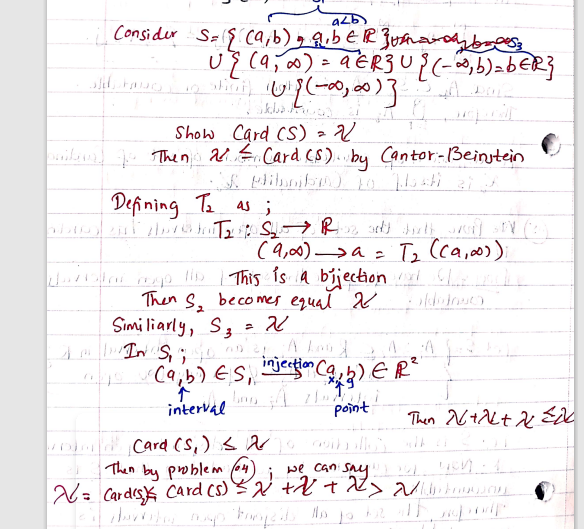 a<b
Consider S = { (a,b) , a,b ∈ ℝ }
S3
∪ { (a, ∞) = a ∈ ℝ } ∪ { (-∞, b) = b ∈ ℝ }
∪ { (-∞, ∞) }
Show Card (S) = χ
Then χ ≤ Card (S) by Cantor-Beinstein
Defining T2 as ;
T2 : S2 → ℝ
(a, ∞) → a = T2 ((a, ∞))
This is a bijection
Then S2 becomes equal χ
Similiarly, S3 = χ
In S1 ;
(a,b) ∈ S1 injection → (a,b) ∈ ℝ²
↑ x ↑ y
interval point
Then χ + χ + χ ≤ χ
Card (S1) ≤ χ
Then by problem (04) ; we can say
χ = Card(S2) ≤ Card (S) ≤ χ + χ + χ > χ